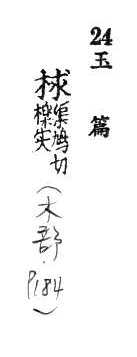 24玉篇
梂渠鳩切
櫟實
(木部.
P184)